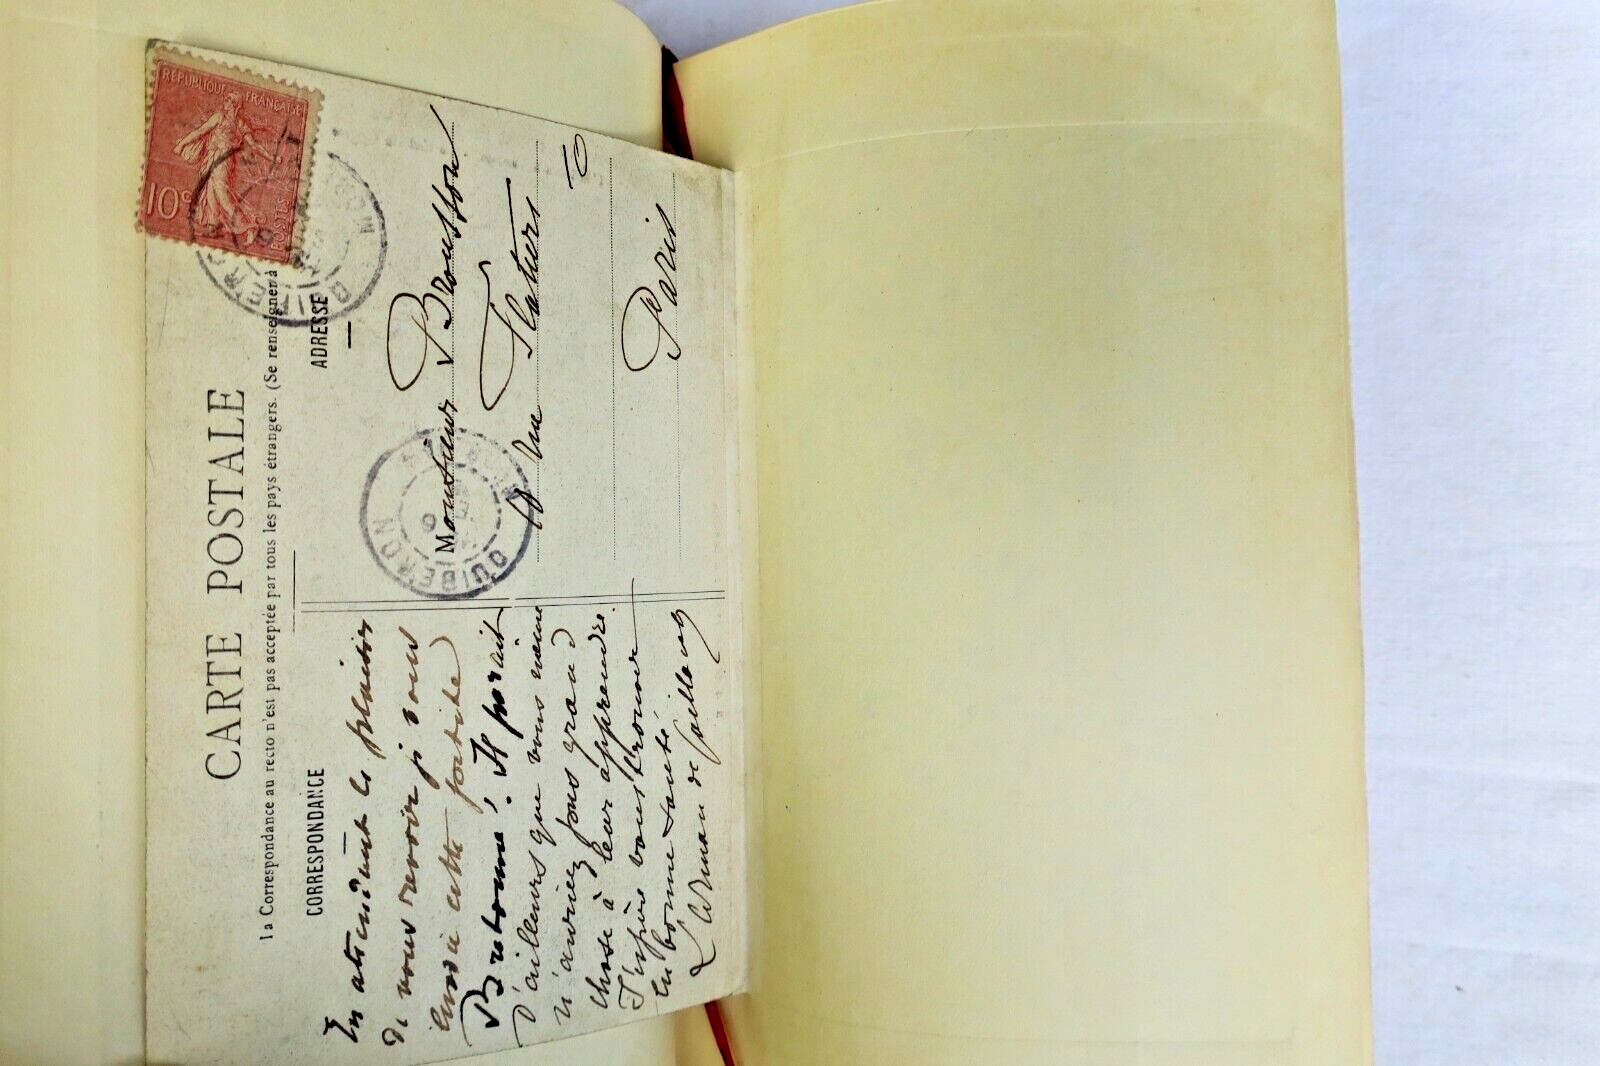 REPUBLIQUE FRANÇAISE
10c
POSTES
CARTE POSTALE
la Correspondance au recto n'est pas acceptée par tous les pays étrangers. (Se renseigner à
CORRESPONDANCE
ADRESSE
En attendant le plaisir
de vous revoir je vous
envoie cette
Bretonne! Il parait
d'ailleurs que vous même
n'auriez pas grand
chose à leur apprendre.
J'espère vous trouver
en bonne santé
Monsieur Brousson
rue
Paris
QUIBERON
QUIBERON
MORBIHAN